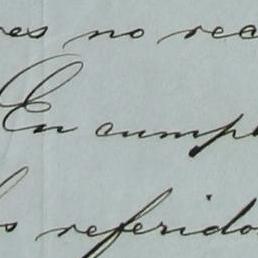 es no rea
En cumpl
s referido